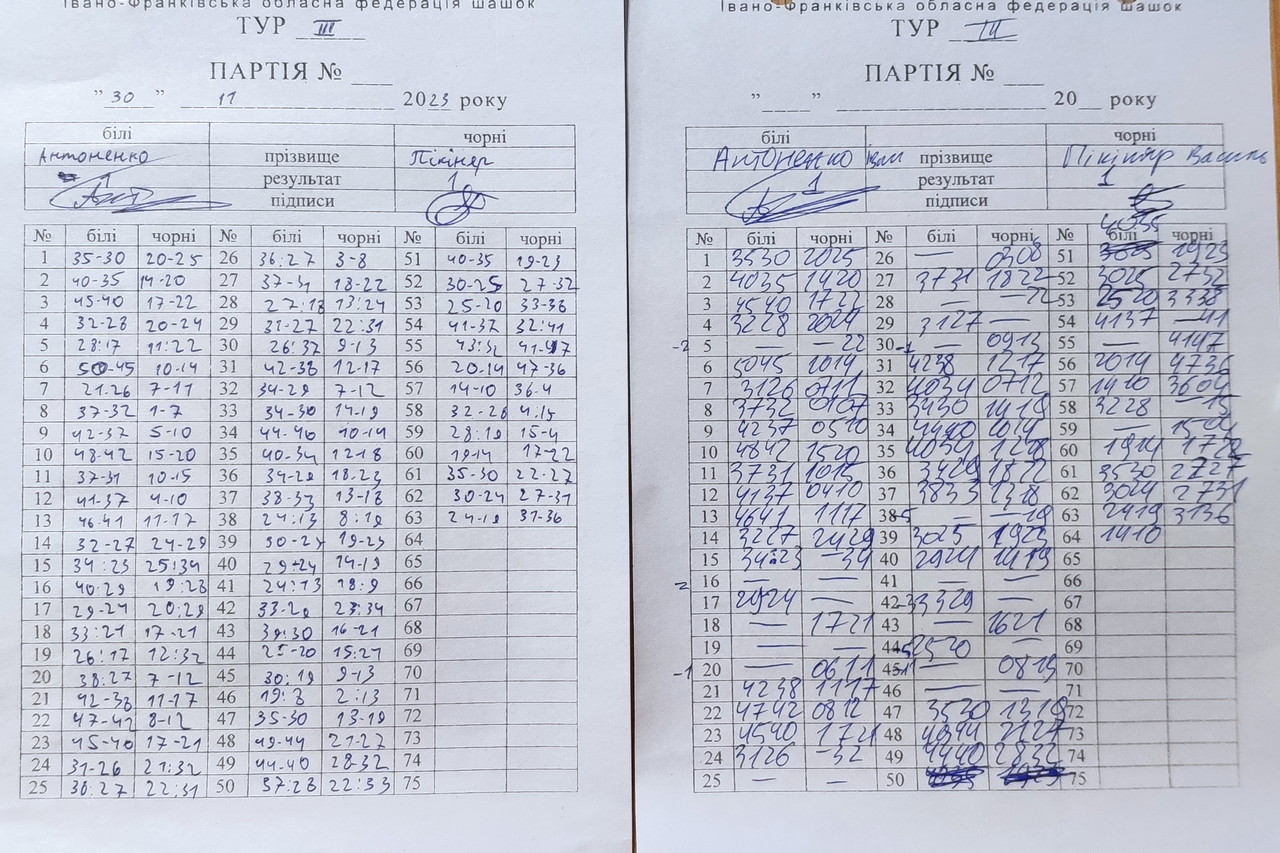 Івано-Франківська обласна федерація шашок
ТУР III
ПАРТІЯ № ___
"30" 11 2023 року
білі чорні
Антоненко прізвище Пікінер
1 результат 1
підписи
№ білі чорні № білі чорні № білі чорні
1 35-30 20-25 26 36:27 3-8 51 40-35 19-23
2 40-35 14-20 27 37-31 18-22 52 30-25 27-32
3 45-40 17-22 28 27:18 13:24 53 25-20 33-38
4 32-28 20-24 29 31-27 22:31 54 41-37 32:41
5 28:17 11:22 30 26:37 9-13 55 43:32 41-47
6 50-45 10-14 31 42-38 12-17 56 20-14 47-36
7 31-26 7-11 32 34-29 7-12 57 14-10 36-4
8 37-32 1-7 33 34-30 14-19 58 32-28 4:15
9 42-37 5-10 34 44-40 10-14 59 28:19 15-4
10 48-42 15-20 35 40-34 12-18 60 19-14 17-22
11 37-31 10-15 36 34-29 18-23 61 35-30 22-27
12 41-37 4-10 37 38-33 13-18 62 30-24 27-31
13 46-41 11-17 38 24:13 8:19 63 24-19 31-36
14 32-27 24-29 39 30-25 19-23 64
15 34:23 25:34 40 29-24 14-19 65
16 40:29 19:28 41 24:13 18:9 66
17 29-24 20:29 42 33-29 23:34 67
18 33:21 17-21 43 39:30 16-21 68
19 26:17 12:32 44 25-20 15:24 69
20 38:27 7-12 45 30:19 9-13 70
21 42-38 11-17 46 19:8 2:13 71
22 47-42 8-12 47 35-30 13-19 72
23 45-40 17-21 48 49-44 21-27 73
24 31-26 21:32 49 44-40 28-32 74
25 38:27 22:31 50 37:28 22:33 75
Івано-Франківська обласна федерація шашок
ТУР III
ПАРТІЯ № ___
"____" ____ 20__ року
білі чорні
Антоненко Іван прізвище Пікінер Василь
1 результат 1
підписи
4035
№ білі чорні № білі чорні № білі чорні
1 3530 2025 26 — 0308 51 1923
2 4035 1420 27 3731 1822 52 3025 2732
3 4540 1722 28 — —22 53 2520 3338
4 3228 2024 29 3127 — 54 4137 —41
-2 5 — —22 30 -1 — 0913 55 — 4147
6 5045 1014 31 4238 1217 56 2014 4736
7 3126 0711 32 4034 0712 57 1410 3604
8 3732 0107 33 3430 1419 58 3228 —15
9 4237 0510 34 4440 1014 59 — 1504
10 4842 1520 35 4034 1218 60 1914 1722
11 3731 1015 36 3429 1822 61 3530 2727
12 4137 0410 37 3833 1318 62 3024 2731
13 4641 1117 38 -5 — —19 63 2419 3136
14 3227 2429 39 3025 1923 64 1410
15 34:23 —34 40 2924 1419 65
2 16 — — 41 — — 66
17 2924 — 42 -3 3329 — 67
18 — 1721 43 — 1621 68
19 — — 44 2520 — 69
-1 20 — 0611 45 — 0813 70
21 4238 1117 46 — — 71
22 4742 0812 47 3530 1319 72
23 4540 1721 48 4944 2127 73
24 3126 —32 49 4440 2832 74
25 — — 50 75